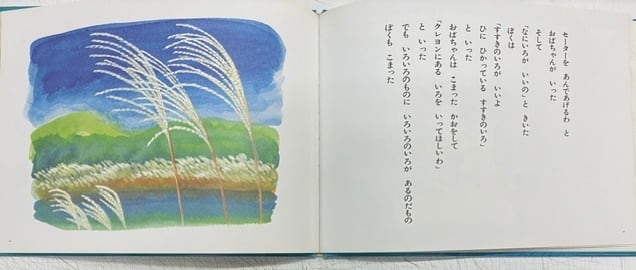 セーターを　あんであげるわ　と
おばちゃんが　いった
そして
「なにいろが　いいの」と　きいた
ぼくは
「すすきのいろが　いいよ
ひに　ひかっている　すすきのいろ」
と　いった
おばちゃんは　こまった　かおをして
「クレヨンにある　いろを　いってほしいわ」
と　いった
でも　いろいろのものに　いろいろのいろが　あるのだもの
ぼくも　こまった